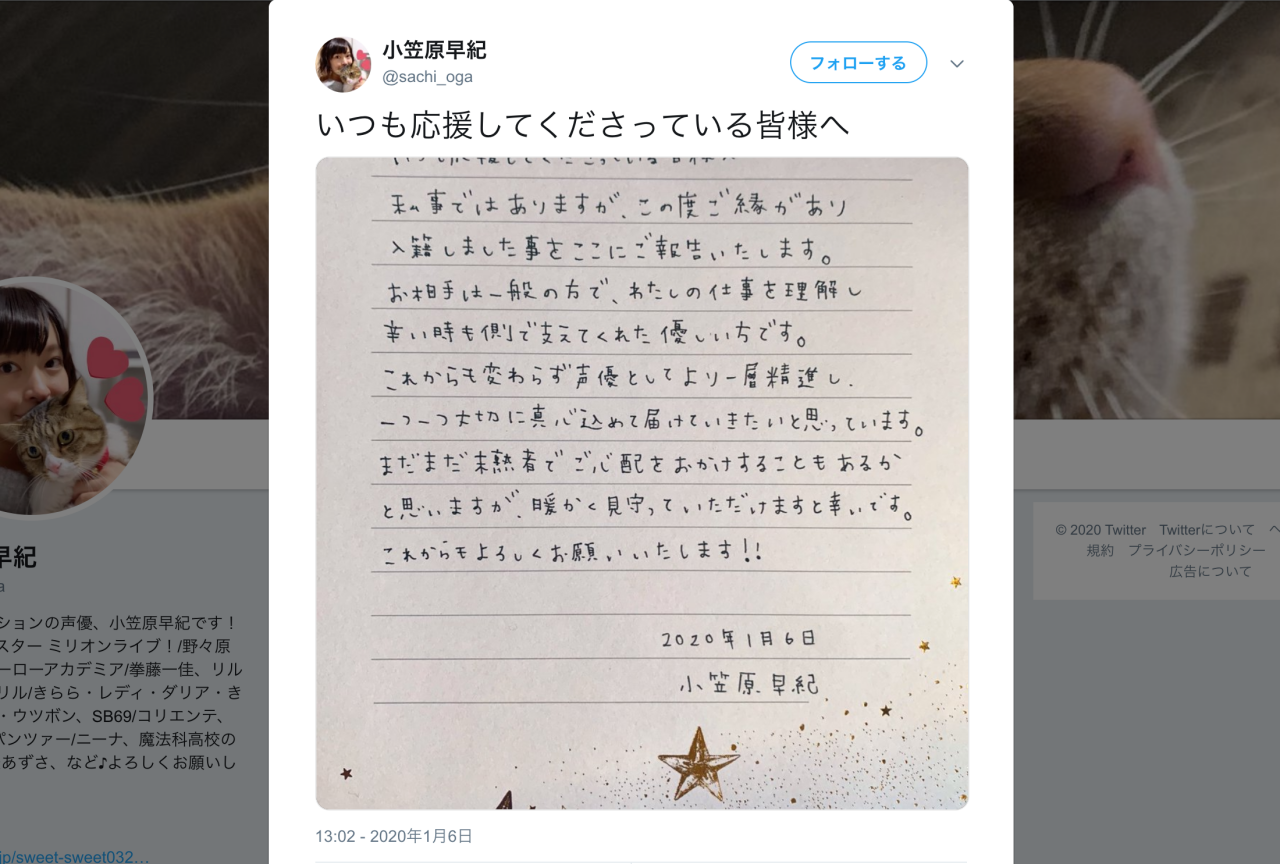 小笠原早紀
@sachi_oga
フォローする
いつも応援してくださっている皆様へ
いつも応援してくださっている皆様へ
私事ではありますが、この度ご縁があり
入籍しました事をここにご報告いたします。
お相手は一般の方で、わたしの仕事を理解し
辛い時も側で支えてくれた優しい方です。
これからも変わらず声優としてより一層精進し、
一つ一つ大切に真心込めて届けていきたいと思っています。
まだまだ未熟者でご心配をおかけすることもあるか
と思いますが、暖かく見守っていただけますと幸いです。
これからもよろしくお願いいたします!!
2020年1月6日
小笠原早紀
13:02 - 2020年1月6日
早紀
a
ションの声優、小笠原早紀です！
スター ミリオンライブ！/野々原
ーローアカデミア/拳藤一佳、リル
リル/きらら・レディ・ダリア・き
・ウツボン、SB69/コリエンテ、
パンツァー/ニーナ、魔法科高校の
あずさ、など♪よろしくお願いし
jp/sweet-sweet032…
© 2020 Twitter Twitterについて ヘ
規約 プライバシーポリシー
広告について